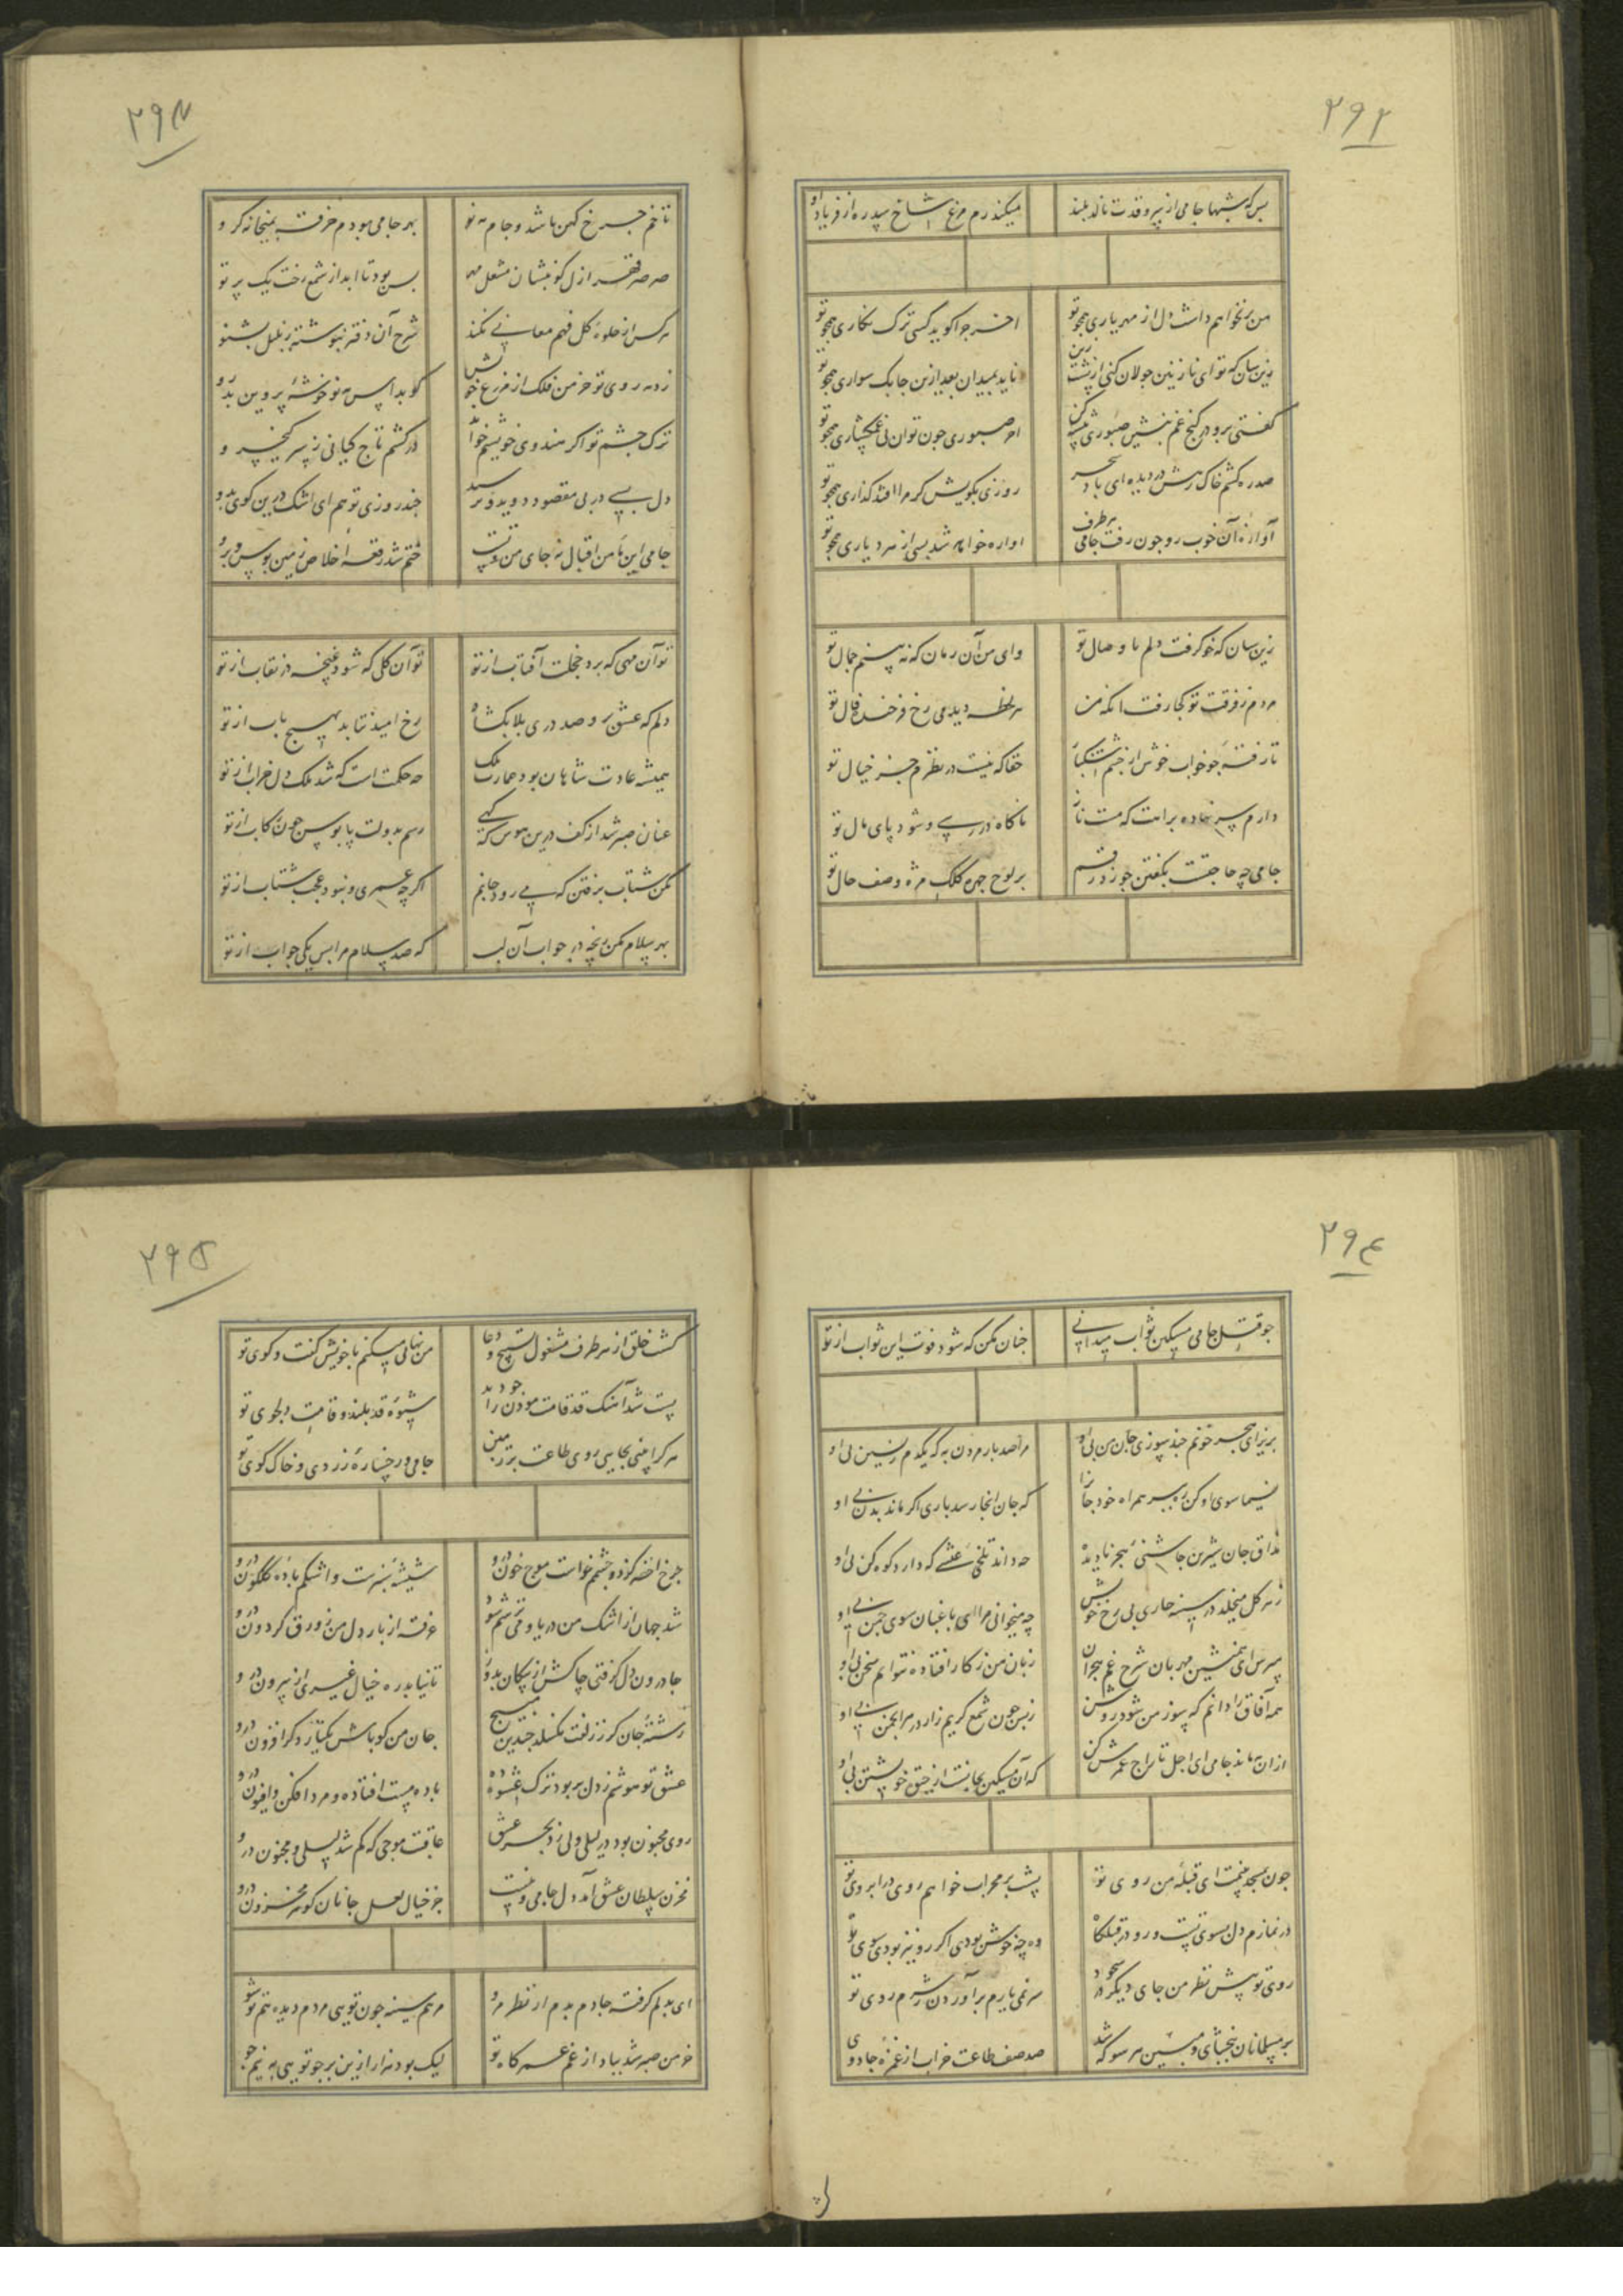 ۲۹۲
بس که شبها جامی از سرو قدت نالد بلند
میکند رم مرغ شاخ سدره از فریاد او
من برنخواهم داشت دل از مهر یاری همچو تو
آخر چرا گوید کسی ترک نگاری همچو تو
زین سان که تو ای نازنین جولان کنی از پشت زین
ناید بمیدان بعد ازین چابک سواری همچو تو
گفتی برو در کنج غم بنشین صبوری پیشه کن
امر صبوری چون توان بی غمگساری همچو تو
صد ره کشم خاک رهش در دیده ای باد سحر
روزی بکویش گر مرا افتد گذاری همچو تو
آوازهٔ آن خوب رو چون رفت جامی هر طرف
آواره خواهد شد بسی از هر دیاری همچو تو
زین سان که خو گرفت دلم با وصال تو
وای من آن زمان که نه بینم جمال تو
مردم ز فرقت تو کجا رفت آنکه من
هر لحظه دیدمی رخ فرخنده فال تو
تا رفتهٔ چو خواب خوش از چشم اشکبار
حقا که نیست در نظرم جز خیال تو
دارم سر نهاده براهت که مست ناز
ناگاه در رسی و شود پای مال تو
جامی چه حاجتست بگفتن چو زد رقم
بر لوح چهره کلک مژه وصف حال تو
۲۹۳
تا خم چرخ کهن باشد و جام مه نو
بهر جامی بودم خرقه بمیخانه گرو
صرصر قهر ازل گو بنشان مشعل مه
بس بود تا ابد از شمع رخت یک پرتو
هر کس از جلوهٔ گل فهم معانی نکند
شرح آن دفتر ننوشته ز بلبل بشنو
زد مه روی تو خرمن فلک از مزرع خویش
گو بداس مه نو خوشهٔ پروین بدرو
ترک چشم تو اگر هندوی خویشم خواند
درکشم تاج کیانی ز سر کیخسرو
دل بسی در پی مقصود دوید و نرسید
چند روزی تو هم ای اشک درین کوی بدو
جامی این نامن اقبال نه جای من و تست
ختم شد رقعهٔ اخلاص زمین بوس و برو
تو آن مهی که برد خجلت آفتاب از تو
تو آن گلی که شود غنچه در نقاب از تو
دلم که عشق برو صد در بلا بگشاد
رخ امید نتابد بهیچ باب از تو
همیشه عادت شاهان بود عمارت ملک
چه حکمت است که شد ملک دل خراب از تو
عنان صبر شد از کف درین هوس که گهی
رسم بدولت پابوس چون رکاب از تو
مکن شتاب برفتن که می رود جانم
اگر چه عمری و نبود عجب شتاب از تو
بهر سلام مکن رنجه در جواب آن لب
که صد سلام مرا بس یکی جواب از تو
۲۹۴
چو قتل جامی مسکین ثواب میدانی
چنان مکن که شود فوت این ثواب از تو
بریز ای هجر خونم چند سوزی جان من بی او
مرا صد بار مردن به که یکدم زیستن بی او
نسیما سوی او کن ره ببر همراه خود جانرا
که جان آنجا رسد باری اگر ماند بدن بی او
مذاق جان شیرین چاشنی هجر نادیده
چه داند تلخی عیشی که دارد کوه کن بی او
ز هر گل میخلد در سینه خاری بی رخ خویش
چه میخوانی مرا ای باغبان سوی چمن بی او
مپرس ای همنشین مهربان شرح غم هجران
زبان من ز کار افتاده نتوانم سخن بی او
همه آفاق را دانم که سوز من شود روشن
زبس چون شمع گریم زار در هر انجمن بی او
از آن مه ماند جامی ای اجل تاراج عمرش کن
که آن مسکین بجانست از حیات خویشتن بی او
چون بمسجد بینمت ای قبلهٔ من روی تو
پشت بر محراب خواهم روی در ابروی تو
در نمازم دل بسوی تست و رو در قبله گاه
وه چه خوش بودی اگر رو نیز بودی سوی تو
روی تو پیش نظر من جای دیگر در سجود
سر نمی یارم برآوردن ز شرم روی تو
بر مسلمانان ببخشای و مبین هر سو که شد
صد صف طاعت خراب از غمزهٔ جادوی
۲۹۵
گشت خلق از هر طرف مشغول تسبیح و دعا
من نهانی میکنم با خویش گفت و گوی تو
پست شد آهنگ قد قامت مؤذن را چو دید
شیوهٔ قد بلند و قامت دلجوی تو
هر کرا بینی بجایی روی طاعت بر زمین
جامی و رخسارهٔ زردی و خاک کوی تو
چرخ اخضر کز دو چشمم خواست موج خون درو
شیشهٔ سبزست و اشکم بادهٔ گلگون درو
شد جهان از اشک من دریا و می ترسم شود
غرقه از بار دل من زورق گردون درو
جا درون دل گرفتی چاکش از پیکان بدوز
تا نیابد ره خیال غیری از بیرون درو
رشتهٔ جان کز زلفت نگسلد چندین مپیچ
جان من گو باش یکتا زو گر افزون درو
عشق تو هوشم ز دل بربود ترک عشوه ده
باده مست افتاده و مرد افکن و افیون درو
روی مجنون بود در لیلی ولی زد بحر عشق
عاقبت موجی که گم شد لیلی و مجنون درو
مخزن سلطان عشق آمد دل جامی و نیست
جز خیال لعل جانان گوهر مخزون درو
ای بدلم گرفته جا دم بدم از نظر مرو
مرهم سینه چون تویی مردم دیده هم تو شو
خرمن صبر شد بباد از غم عمر کاه تو
لیک بود هزار ازین بر چو تویی به نیم جو